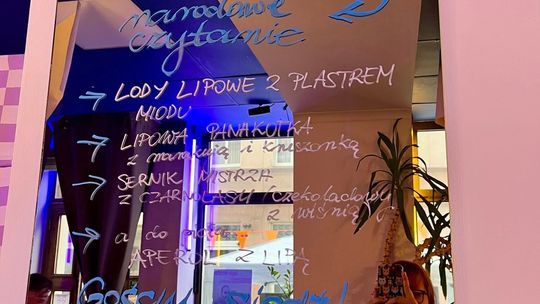 narodowe
czytanie.
→ LODY LIPOWE Z PLASTREM
MIODU
→ LIPOWA PANAKOTKA
z marakują i kruszonką
→ SERNIK MISTRZA
Z CZARNOLASU (czekoladowy
z wiśnią)
→ a do
APEROL Z LIPĄ